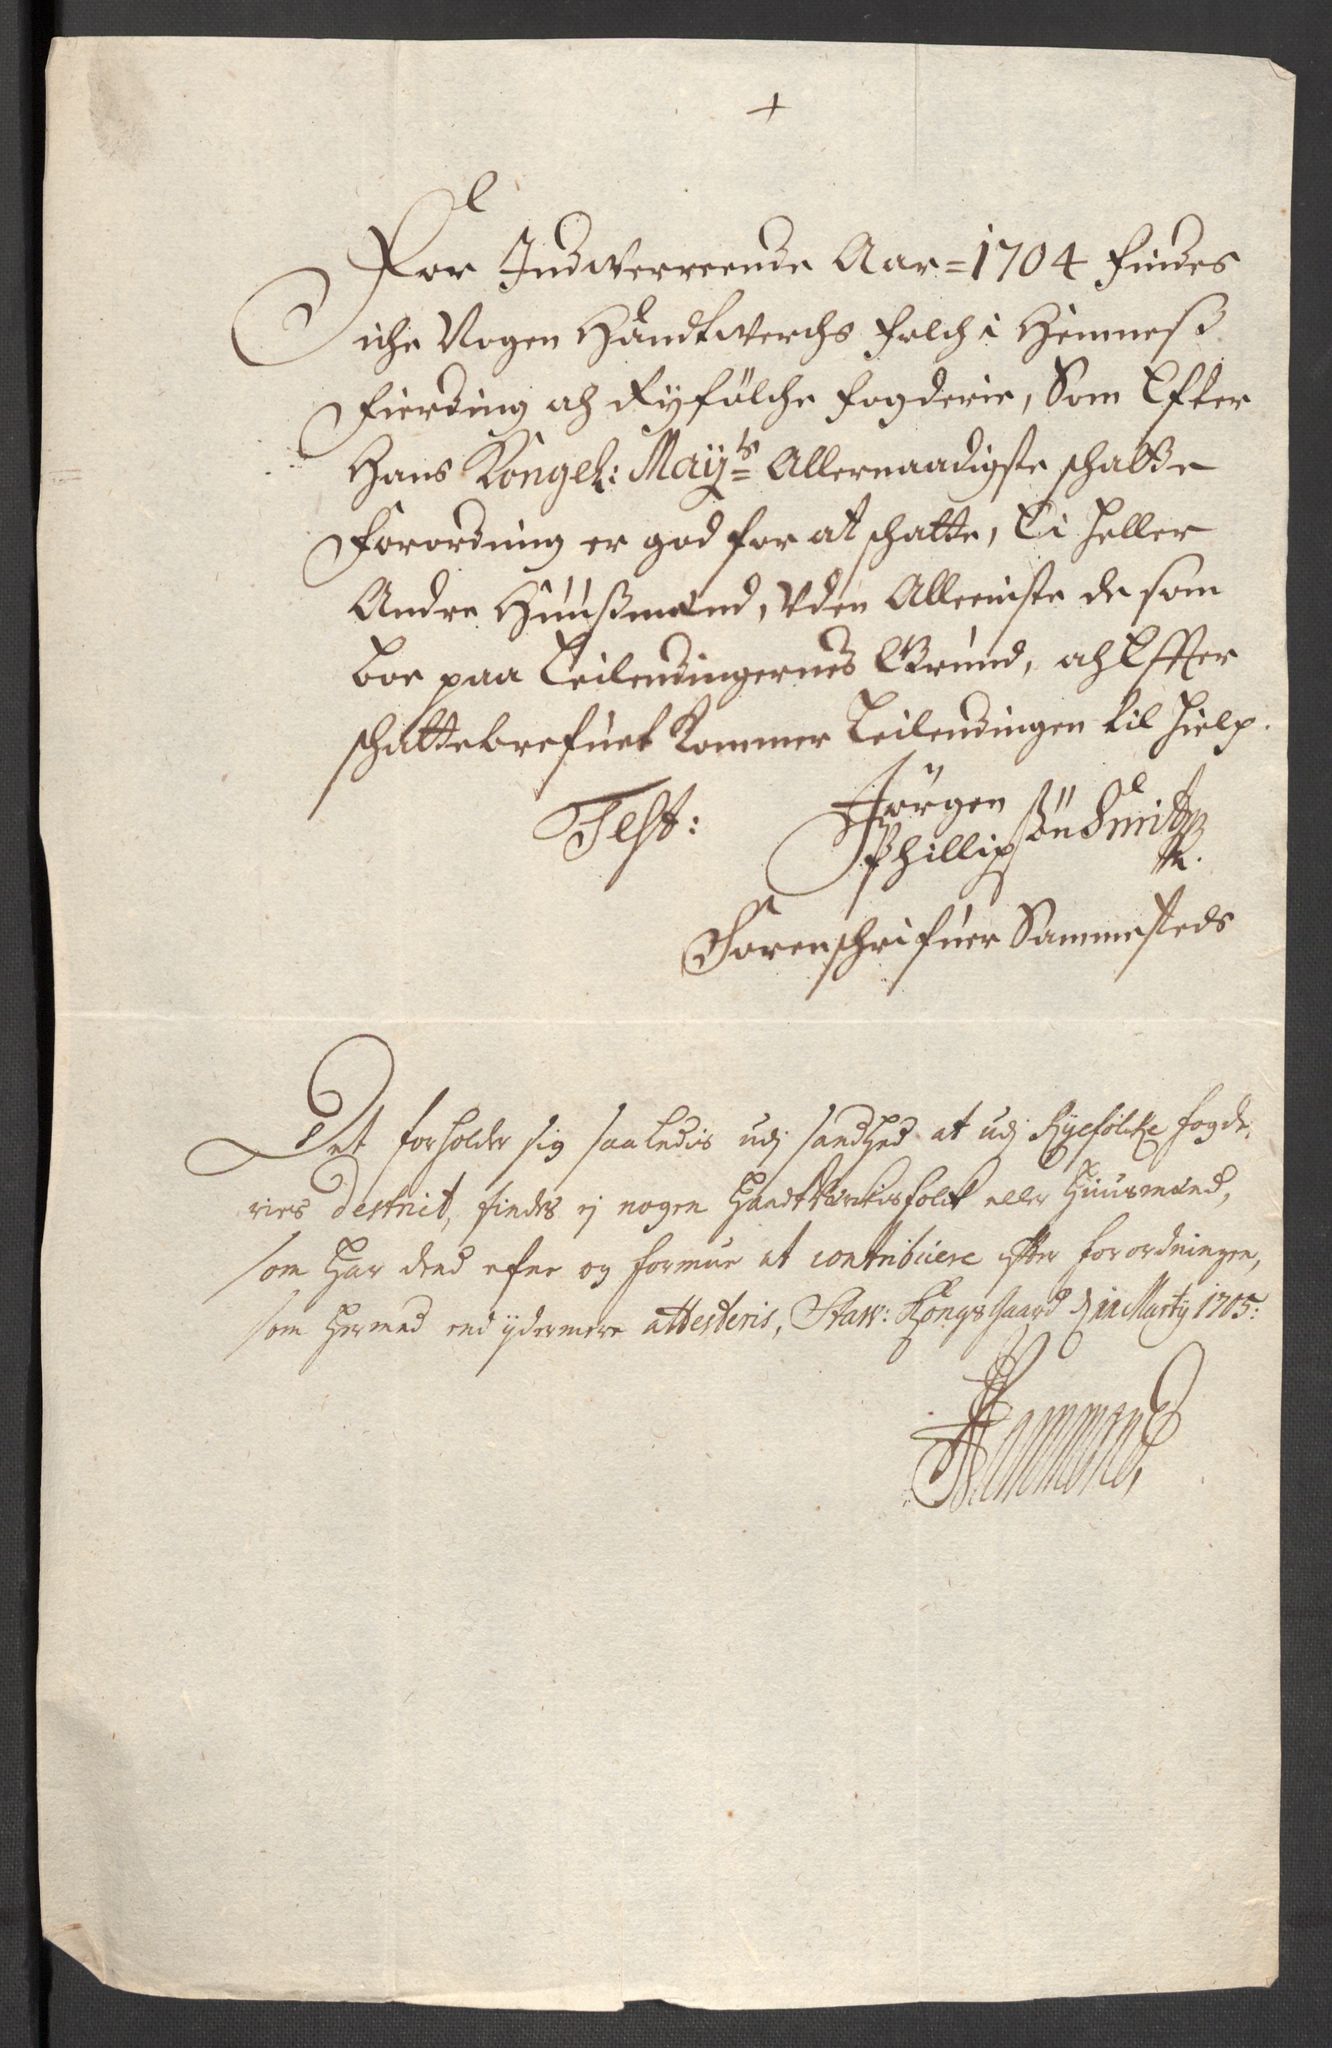 +
For Indwerreende Aar = 1704 findes
iche Nogen Håndtwerchs folch i Hemneß
Fierding af Ryfølche fogderie, Som Efter
Hans Kongel: Maÿts Allernaadigste schatte
Forordning er god for at schatte, Ei heller
Andre Huußmænd, Uden Alleeniste de som
boe paa Leilendingernes Grund, af Effter
schattebrefuet kommer Leilendingen til hielp.
Test: Jørgen
Phillipsøn Smit
Sorenschrifuer Sammesteds
Det forholder sig saaledis udj sandhed at udj Ryefølke fogde-
ries destrict, findes ej nogen Haandtverkisfolk eller Huusmænd,
som har dend efne og formue at contribuere efter forordningen,
som hermed end ydermere attesteris, Staw: Kongsgaard d 11 Martij 1705:
Hammond